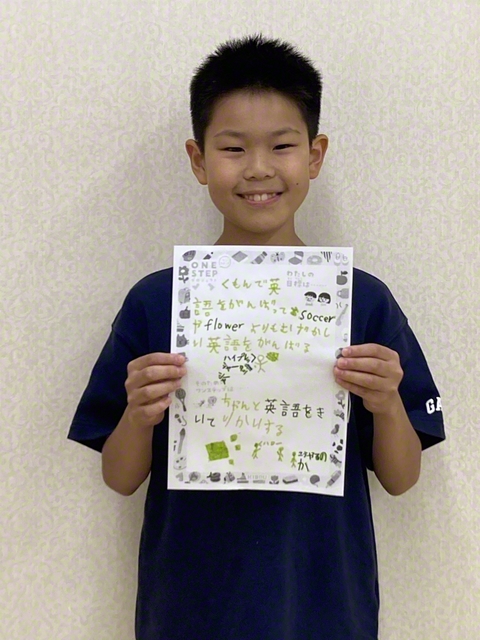 ONE
STEP
わたしの
目標は
くもんで英
語をがんばって soccer
や flower よりもむずかし
い英語をがんばる
ハイブルク
そのための
ワンステップは
ちゃんと英語をき
いてりかいする
ハロー
か
GA